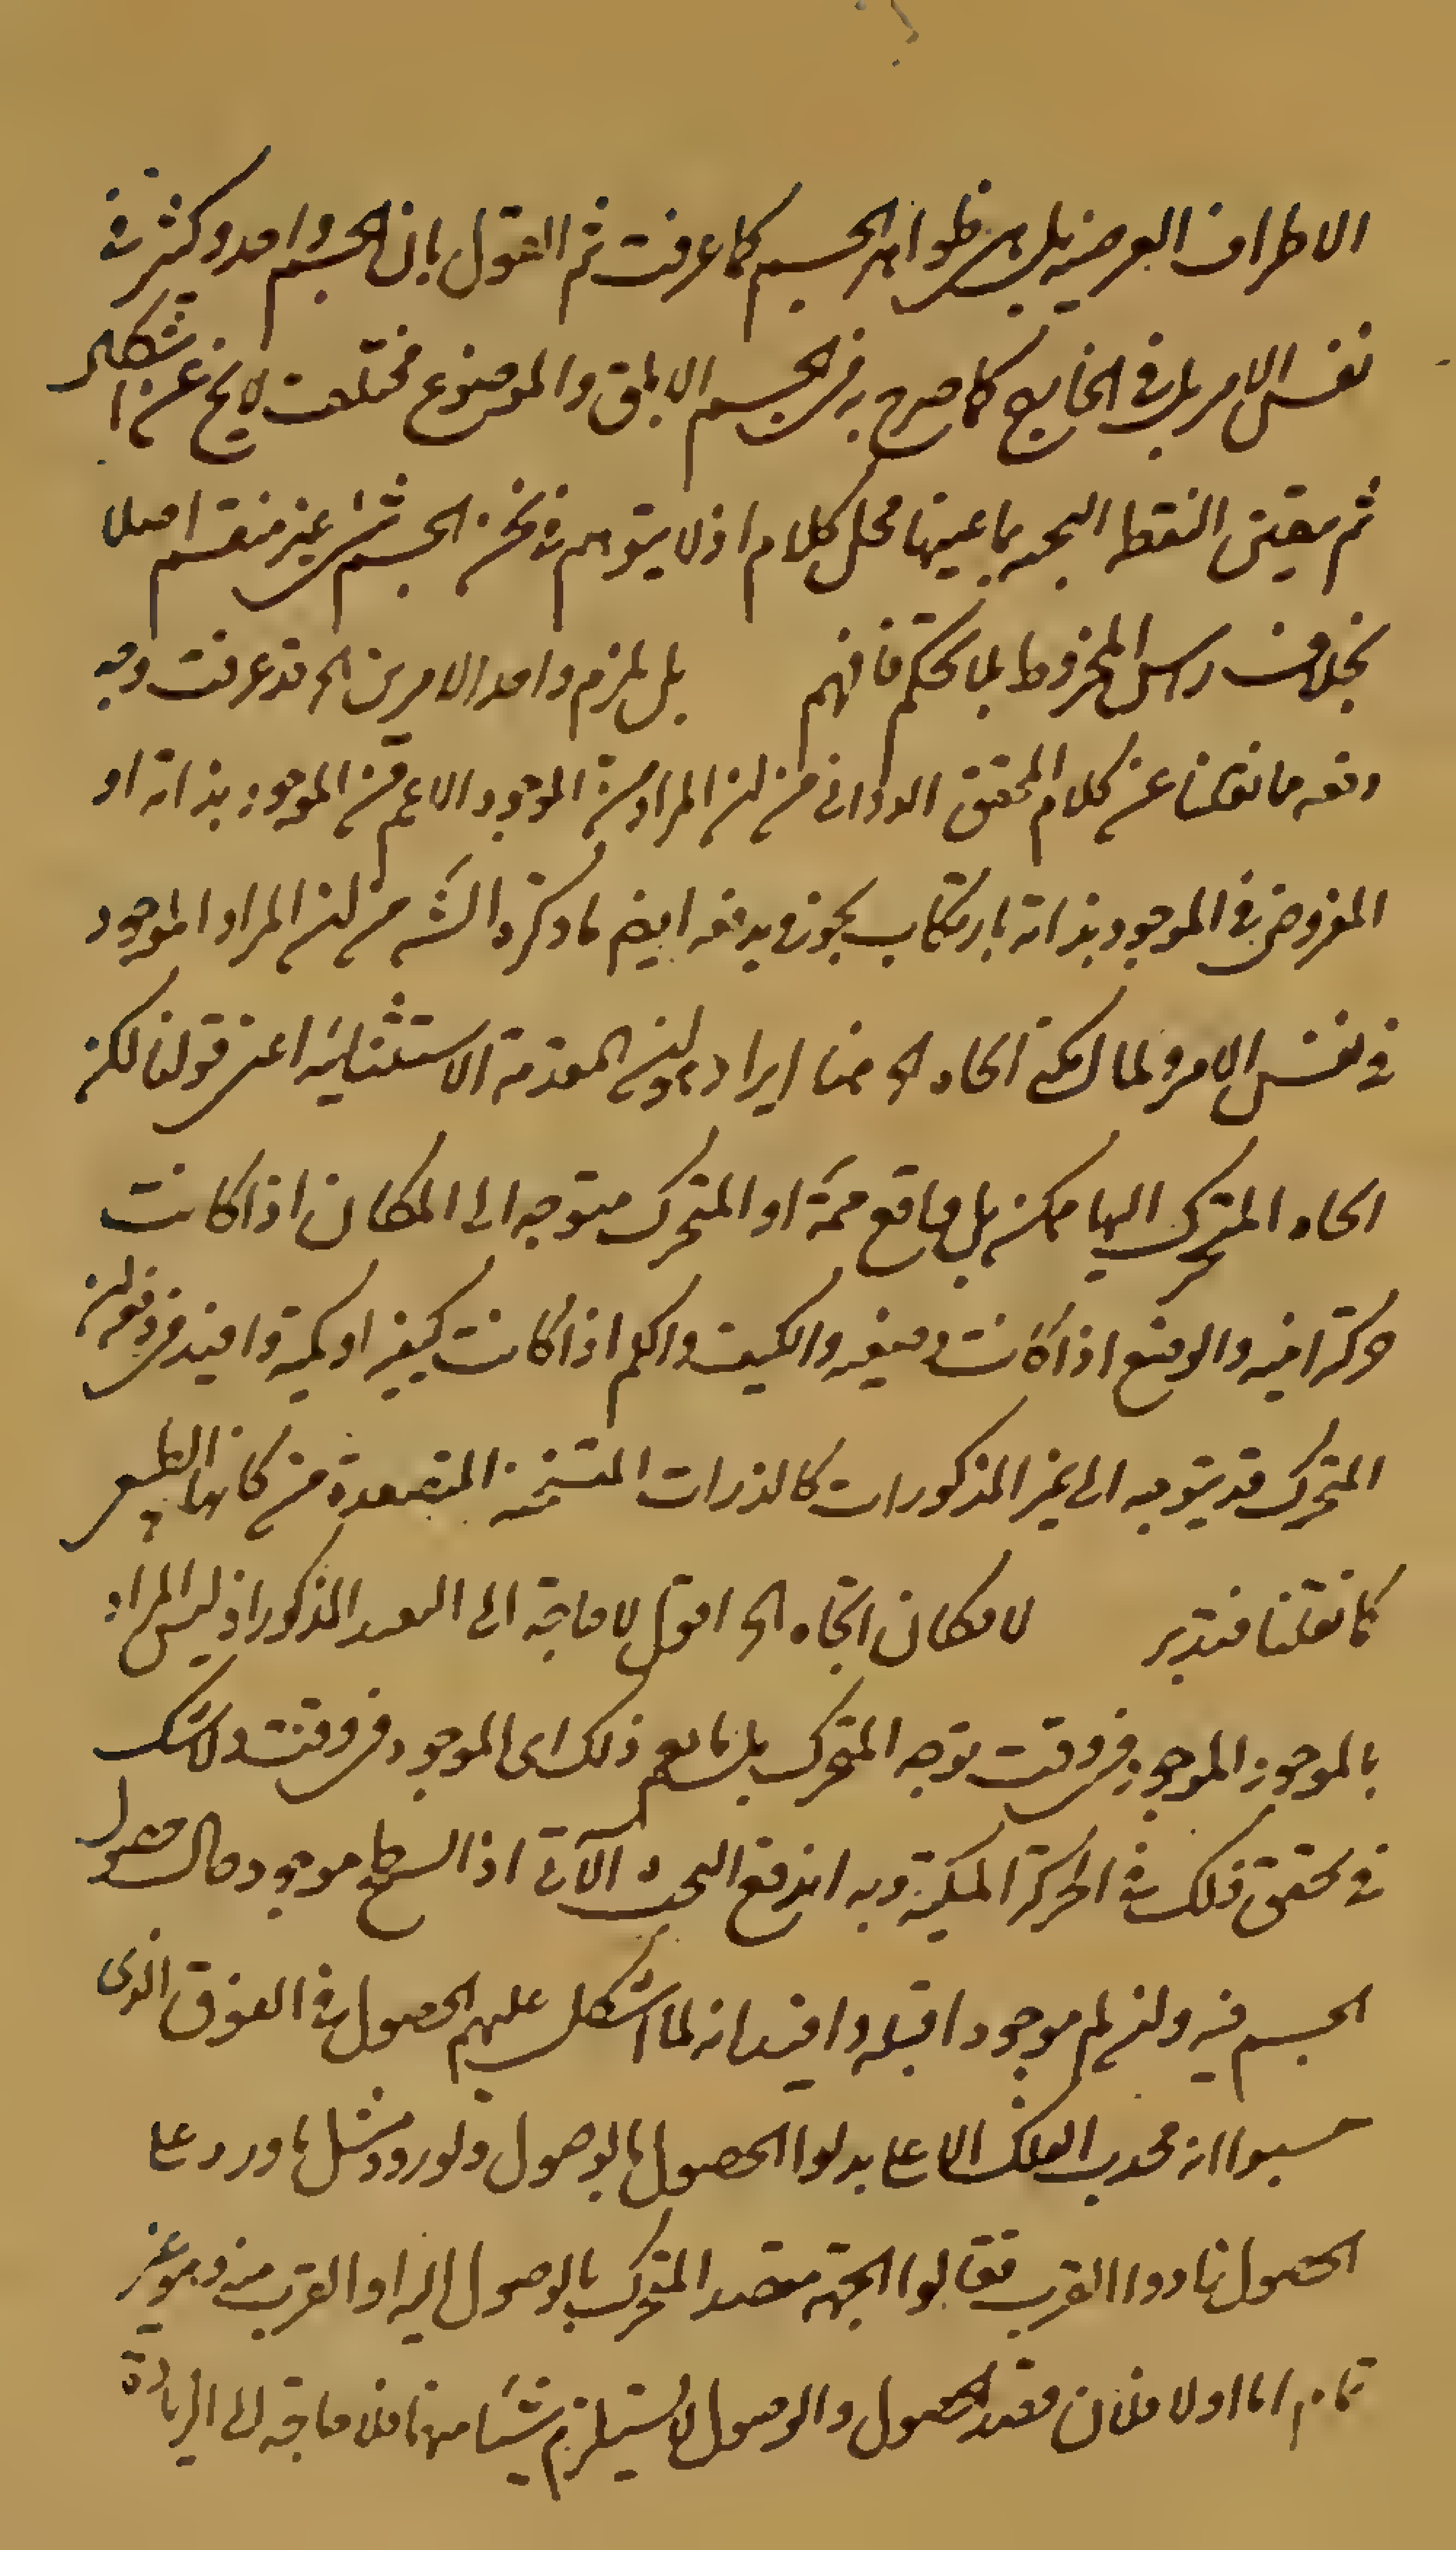 الاطراف العرضيه بل هى ظواهر الجسم كما عرفت ثم القول بان الجسم واحد وكثير فى
نفس الامر بل فى الخارج كما صرح به فى الجسم الابلق والموضوع مختلف لا يخ عن اشكال
ثم بقى النقطه بما عينها محل كلام اذ لا يتوهم فى ثخن الجسم شئ غير منقسم اصلا
بخلاف راس المخروط بلا تحكم فافهم بل يلزم واحد الامرين الخ قد عرفت وجه
دفعه ما نقلنا عن كلام المحقق الدوانى من ان المراد من الموجود الاعم من الموجود بذاته او
المفروض فى الموجود بذاته بارتكاب تجوز فى يدفعه ايضا ما ذكره الش من ان المراد الموجود
فى نفس الامر ولما لم يكن اتحاد الخ هنا ايراد المقدمة الاستثنائيه اعنى قولنا لكن
اتحاد المتحرك اليها ممكن بل واقع ثمة او المتحرك متوجه الى المكان اذا كانت
حركته اينيه والوضع اذا كانت وضعيه والكيف والكم اذا كانت كيفيه او كمية وايضا
المتحرك قد يتوجه الى غير المذكورات كالذرات المتسخنه المتصعدة من مكانها الطبيعى
كما نقلنا فتدبر لامكان اتجاه الخ اقول لا حاجة الى البعد المذكور اذ ليس المراد
بالموجود الموجود فى وقت توجه المتحرك بل ما يعم ذلك اى الموجود فى وقت ولا شك
فى تحقق ذلك فى الحركة الكمية وبه اندفع البحث الآتى اذ السطح موجود حال حصول
الجسم فيه وان لم موجودا قبله وايضا انه لما اشكل عليهم الحصول فى الفوق الذى
حسبوا انه محدب الفلك الاعلى بدلوا الحصول بالوصول ولورود مثل ما ورد على
الحصول زادوا القرب فقالوا الجهة مقصد المتحرك بالوصول اليه او القرب منه وهو غير
تمام اما اولا فلان قصد الحصول والوصول لا يستلزم شيئا منهما فلا حاجة الى الزيادة